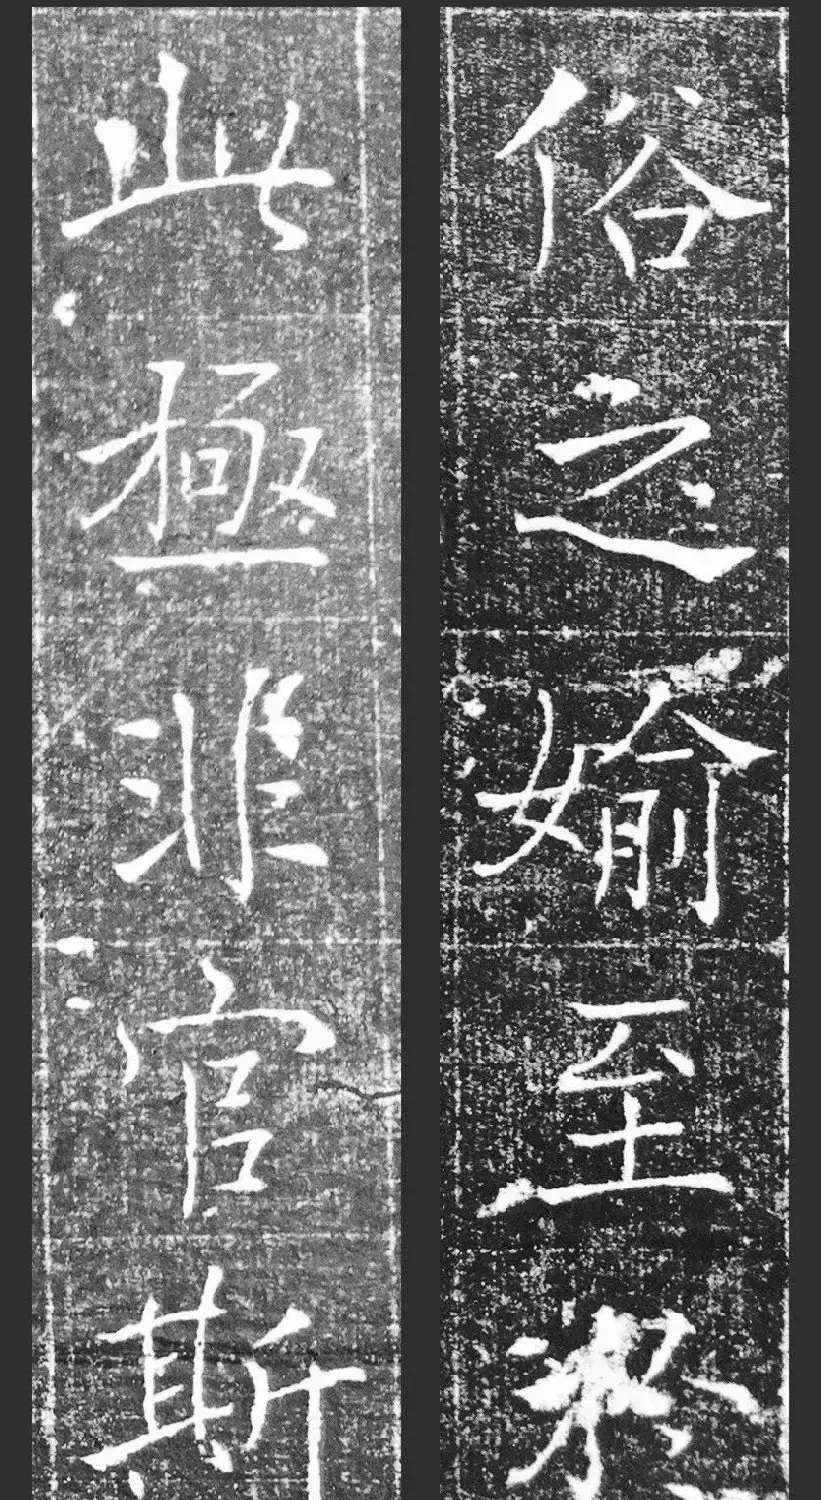 俗之媮至
此極非官斯